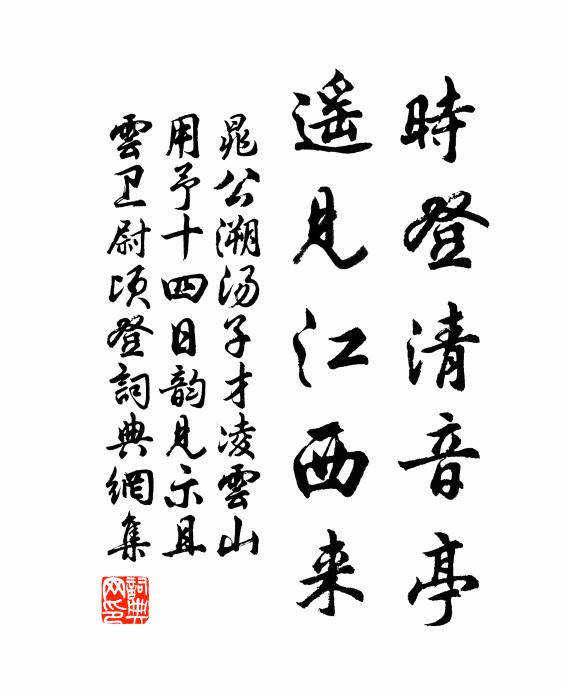 時登清音亭
遥見江西来
晁公溯汤子才凌雲山
用予十四日韵見示且
雲卫尉顷登詞典網集
詞典
网印